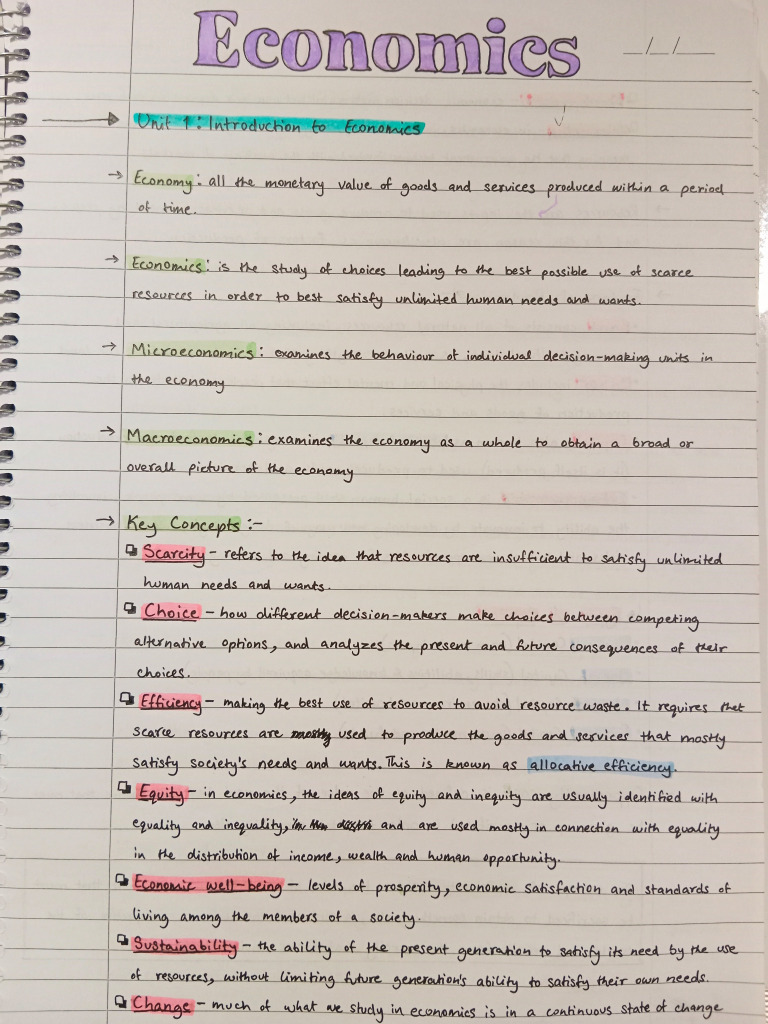 Economics
__/__/____
Unit 1: Introduction to Economics
→ Economy: all the monetary value of goods and services produced within a period
of time.
→ Economics: is the study of choices leading to the best possible use of scarce
resources in order to best satisfy unlimited human needs and wants.
→ Microeconomics: examines the behaviour of individual decision-making units in
the economy
→ Macroeconomics: examines the economy as a whole to obtain a broad or
overall picture of the economy
→ Key Concepts :-
Scarcity - refers to the idea that resources are insufficient to satisfy unlimited
human needs and wants.
Choice - how different decision-makers make choices between competing
alternative options, and analyzes the present and future consequences of their
choices.
Efficiency - making the best use of resources to avoid resource waste. It requires that
scarce resources are used to produce the goods and services that mostly
satisfy society's needs and wants. This is known as allocative efficiency.
Equity - in economics, the ideas of equity and inequity are usually identified with
equality and inequality, and are used mostly in connection with equality
in the distribution of income, wealth and human opportunity.
Economic well-being - levels of prosperity, economic satisfaction and standards of
living among the members of a society.
Sustainability - the ability of the present generation to satisfy its need by the use
of resources, without limiting future generation's ability to satisfy their own needs.
Change - much of what we study in economics is in a continuous state of change